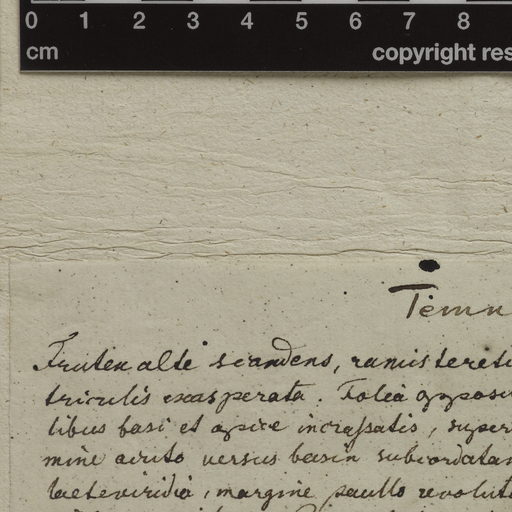 0 1 2 3 4 5 6 7 8
cm copyright res
Temn
Frutex alte scandens, ramis tereti
triculis exasperata. Folia opposi
libus basi et apice incrassatis, super
mine acuto versus basin subcordatam
laeteviridia, margine paullo revoluto